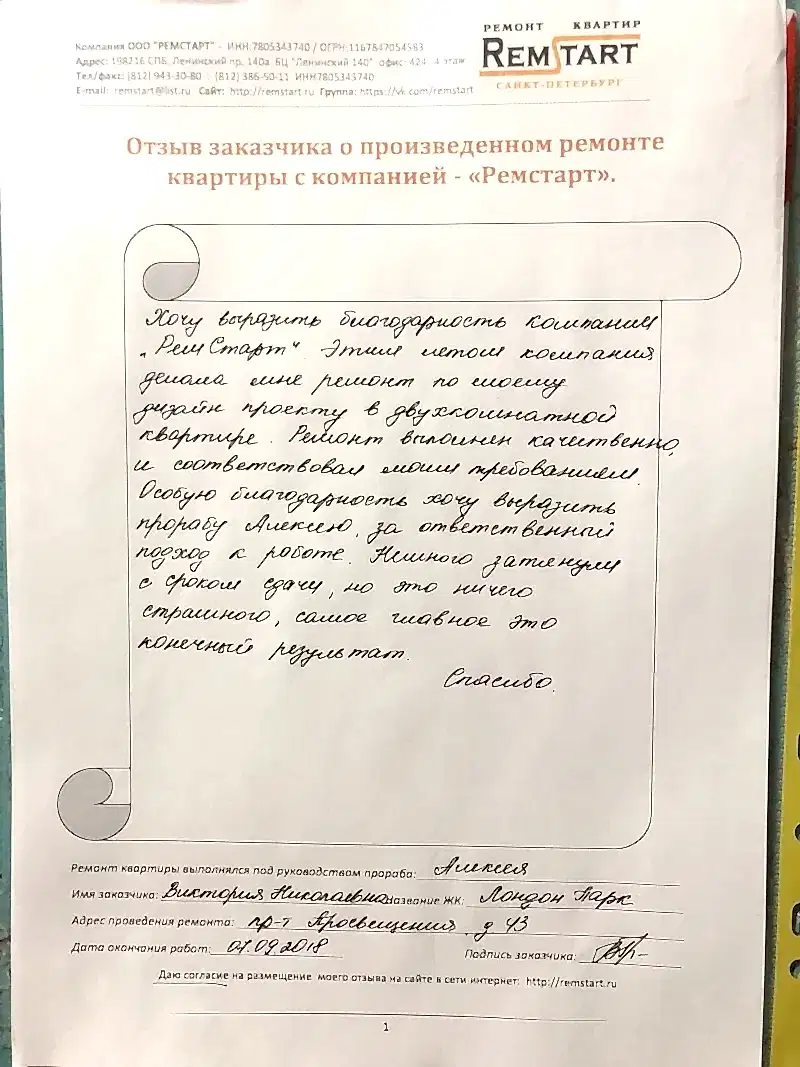 РЕМОНТ КВАРТИР
REMSTART
САНКТ-ПЕТЕРБУРГ
Компания ООО "РЕМСТАРТ" - ИНН:7805343740 / ОГРН:1167847054583
Адрес: 198216 СПБ, Ленинский пр. 140а БЦ "Ленинский 140" офис 424 4 этаж
Тел/факс: (812) 943-30-80 (812) 386-50-11 ИНН7805343740
E-mail: remstart@list.ru Сайт: http://remstart.ru Группа: https://vk.com/remstart
Отзыв заказчика о произведенном ремонте
квартиры с компанией - «Ремстарт».
Хочу выразить благодарность компании
„РемСтарт“. Этим летом компания
делала мне ремонт по моему
дизайн проекту в двухкомнатной
квартире. Ремонт выполнен качественно,
и соответствовал моим требованиям.
Особую благодарность хочу выразить
прорабу Алексею, за ответственный
подход к работе. Немного затянули
с сроком сдачи, но это ничего
страшного, самое главное это
конечный результат.
Спасибо.
Ремонт квартиры выполнялся под руководством прораба: Алексея
Имя заказчика: Виктория Николаевна Название ЖК: Лондон Парк
Адрес проведения ремонта: пр-т Просвещения д 43
Дата окончания работ: 07.09.2018 Подпись заказчика:
Даю согласие на размещение моего отзыва на сайте в сети интернет: http://remstart.ru
1